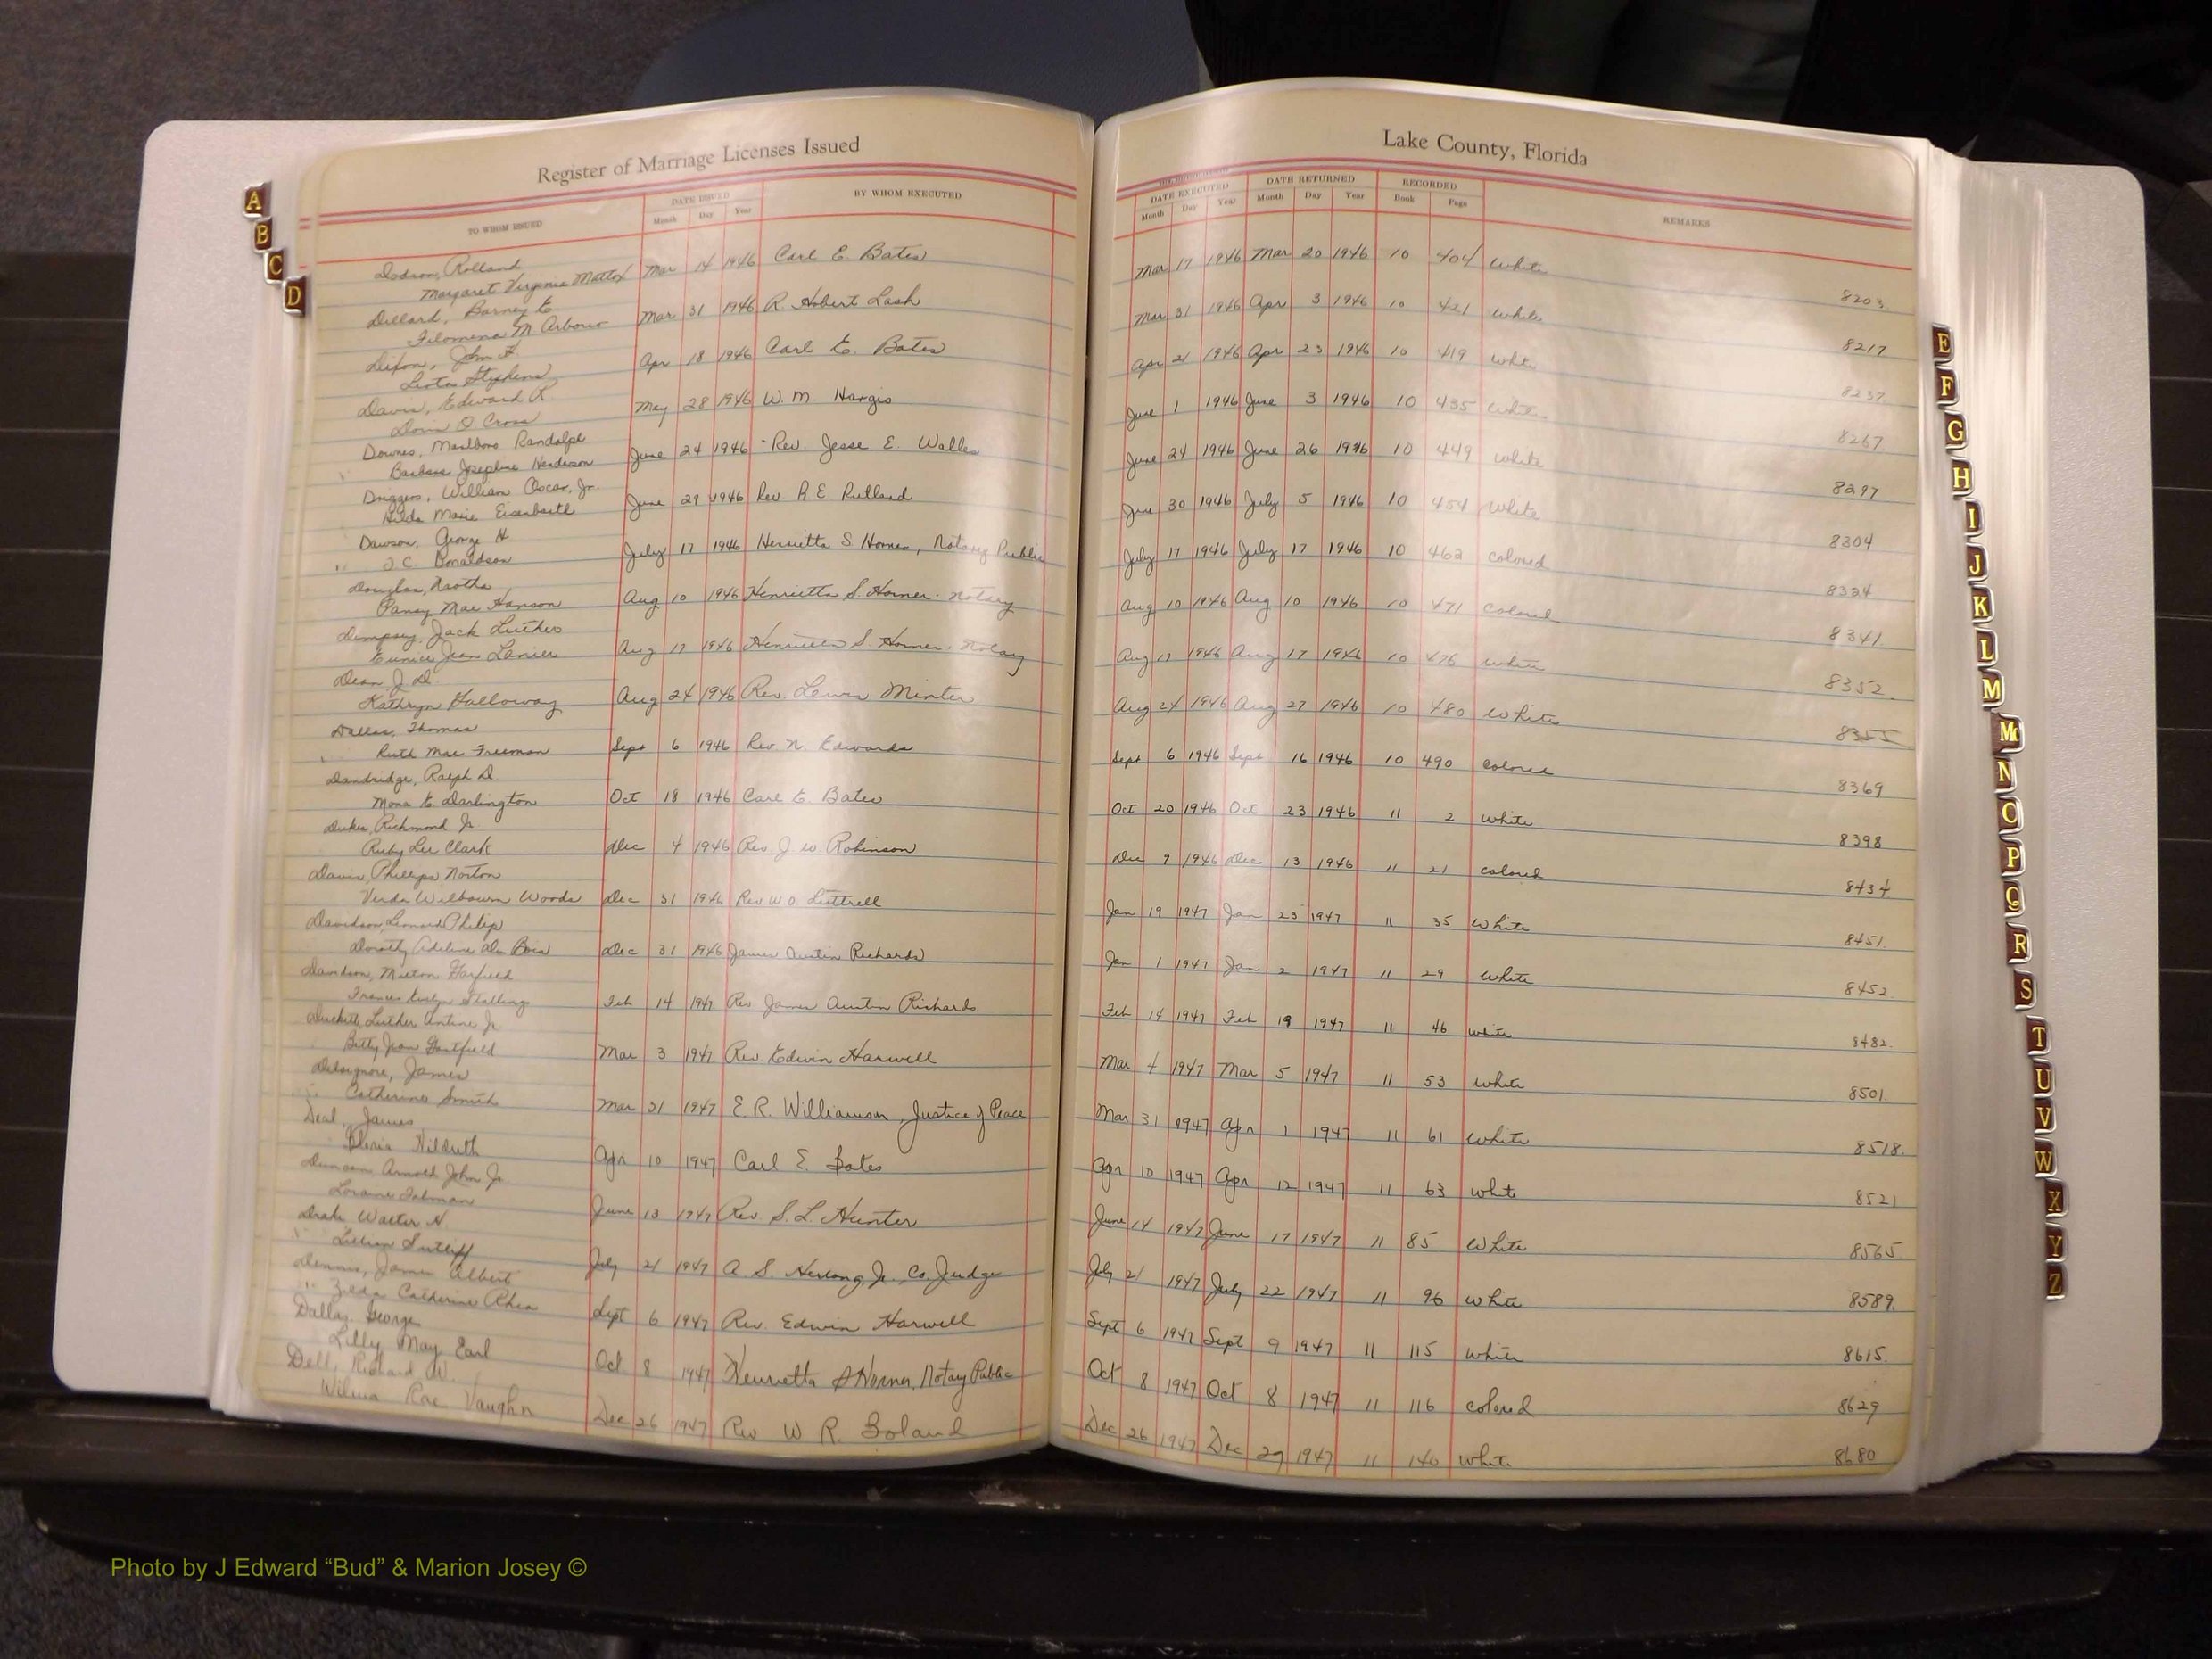 Register of Marriage Licenses Issued
Lake County, Florida
TO WHOM ISSUED DATE ISSUED Month Day Year BY WHOM EXECUTED
DATE EXECUTED Month Day Year DATE RETURNED Month Day Year RECORDED Book Page REMARKS
Dodson, Rolland
Margaret Virginia Mattox Mar 14 1946 Carl E. Bates Mar 17 1946 Mar 20 1946 10 404 White 8203
Dillard, Barney E
Filomena M Arbour Mar 31 1946 R Hobert Lash Mar 31 1946 Apr 3 1946 10 421 White 8217
Dixon, John F.
Leota Stephens Apr 18 1946 Carl E. Bates Apr 21 1946 Apr 23 1946 10 419 White 8237
Davis, Edward R
Doris O. Cross May 28 1946 W. M. Hargis June 1 1946 June 3 1946 10 435 White 8267
Downes, Marlboro Randolph
Barbara Josephine Henderson June 24 1946 Rev. Jesse E. Waller June 24 1946 June 26 1946 10 449 White 8297
Driggers, William Oscar, Jr.
Hilda Marie June 29 1946 Rev. R E Rutland June 30 1946 July 5 1946 10 454 White 8304
Dawson, George H
" J. C. Donaldson July 17 1946 Henrietta S. Horner, Notary Public July 17 1946 July 17 1946 10 462 colored 8324
Douglas,
Pansy Mae Hanson Aug 10 1946 Henrietta S. Horner. Notary Aug 10 1946 Aug 10 1946 10 471 Colored 8341
Dempsey, Jack Luther
Eunice Jean Lanier Aug 17 1946 Henrietta S. Horner. Notary Aug 17 1946 Aug 17 1946 10 476 White 8352
Dean J. D.
Kathryn Galloway Aug 24 1946 Rev. Lewis Minter Aug 24 1946 Aug 27 1946 10 480 White 8355
Dallas, Thomas
Ruth Mae Freeman Sept 6 1946 Rev. N. Edwards Sept 6 1946 Sept 16 1946 10 490 Colored 8369
Dandridge, Ralph D.
Mona E. Darlington Oct 18 1946 Carl E. Bates Oct 20 1946 Oct 23 1946 11 2 White 8398
Dukes, Richmond Jr.
Ruby Lee Clark Dec 4 1946 Rev J W Robinson Dec 9 1946 Dec 13 1946 11 21 colored 8434
Davis, Phillips Norton
Verda Wilbourn Woods Dec 31 1946 Rev W.O. Luttrell Jan 19 1947 Jan 23 1947 11 35 White 8451
Davidson, Leonard Philip
Dorothy Adeline Du Bois Dec 31 1946 James Austin Richards Jan 1 1947 Jan 2 1947 11 29 White 8452
Davidson, Milton Garfield
Frances Evelyn Stallings Feb 14 1947 Rev James Austin Richards Feb 14 1947 Feb 19 1947 11 46 White 8482
Duckett, Luther Antine Jr
Betty Jean Mar 3 1947 Rev. Edwin Harwell Mar 4 1947 Mar 5 1947 11 53 White 8501
Delsignore, James
Catherine Smith Mar 31 1947 E. R. Williamson, Justice of Peace Mar 31 1947 Apr 1 1947 11 61 White 8518
Deal, James
Gloria Hildreth Apr 10 1947 Carl E. Bates Apr 10 1947 Apr 12 1947 11 63 White 8521
Duncan Arnold John Jr.
Loraine June 13 1947 Rev. S. L. Hunter June 14 1947 June 17 1947 11 85 White 8565
Drake Walter N.
" Lillian Sutliff July 21 1947 A. S. Herlong, Jr. Co. Judge July 21 1947 July 22 1947 11 96 White 8589
Dennis, James Albert
" Zelda Catherine Rhea Sept 6 1947 Rev. Edwin Harwell Sept 6 1947 Sept 9 1947 11 115 White 8615
Dallas, George
Lilly May Earl Oct 8 1947 Henrietta S Horner, Notary Public Oct 8 1947 Oct 8 1947 11 116 colored 8629
Dell, Richard W.
Wilma Rae Vaughn Dec 26 1947 Rev W R. Boland Dec 26 1947 Dec 29 1947 11 140 White 8680
A
B
C
D
E
F
G
H
I
J
K
L
M
Mc
N
O
P
Q
R
S
T
U
V
W
X
Y
Z
Photo by J Edward “Bud” & Marion Josey ©